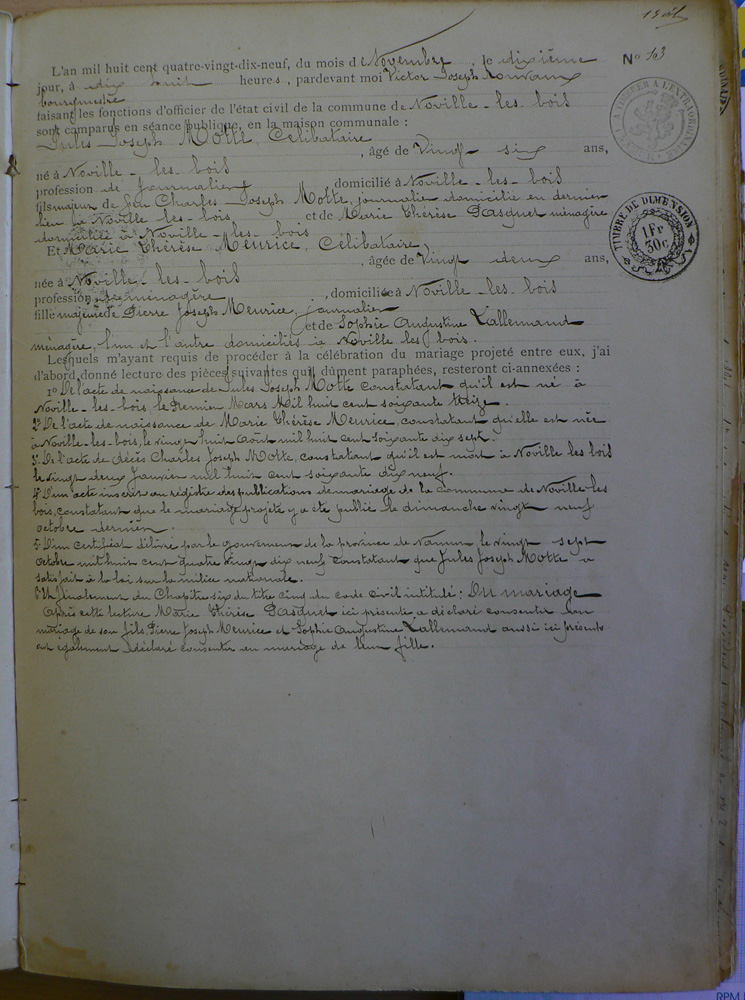 N° 103
L'an mil huit cent quatre-vingt-dix-neuf, du mois de Novembre, le dixième
jour, à dix huit heures, pardevant moi Victor Joseph
bourgmestre
faisant les fonctions d'officier de l'état civil de la commune de Noville-les-bois
sont comparus en séance publique, en la maison communale :
Jules Joseph Motte, Célibataire
, âgé de Vingt six ans,
né à Noville-les-bois
profession de journalier domicilié à Noville-les-bois
fils majeur de feu Charles Joseph Motte, journalier domicilié en dernier
lieu à Noville-les-bois, et de Marie Thérèse Pasquet ménagère
domiciliée à Noville-les-bois
Et Marie Thérèse Meurice, Célibataire,
, âgée de Vingt deux ans,
née à Noville-les-bois
profession de ménagère, domiciliée à Noville-les-bois
fille majeure de Pierre Joseph Meurice, journalier
et de Sophie Augustine Lallemand
ménagère, l'un et l'autre domiciliés à Noville les bois.
Lesquels m'ayant requis de procéder à la célébration du mariage projeté entre eux, j'ai
d'abord donné lecture des pièces suivantes qui, dûment paraphées, resteront ci-annexées :
1° De l'acte de naissance de Jules Joseph Motte constatant qu'il est né à
Noville-les-bois, le Premier Mars Mil huit cent soixante treize.
2° De l'acte de naissance de Marie Thérèse Meurice, constatant qu'elle est née
à Noville-les-bois, le vingt huit Août mil huit cent soixante dix sept.
3° De l'acte de décès Charles Joseph Motte, constatant qu'il est mort à Noville les bois
le vingt deux Janvier mil huit cent soixante dix neuf.
4° D'un acte inscrit au régistre des publications de mariage de la commune de Noville-les
bois, constatant que le mariage projeté y a été publié le dimanche vingt neuf
octobre dernier.
5° D'un certificat délivré par le gouverneur de la province de Namur le vingt sept
octobre mil huit cent quatre vingt dix neuf constatant que Jules Joseph Motte a
satisfait à la loi sur la milice nationale.
6° Et finalement du Chapitre six du titre cinq du code civil intitulé : Du mariage
Après cette lecture Marie Thérèse Pasquet ici présente a déclaré consentir au
mariage de son fils, Pierre Joseph Meurice et Sophie Augustine Lallemand aussi ici présents
ont également déclaré consentir au mariage de leur fille.
TIMBRE DE DIMENSION
1 Fr
30 c